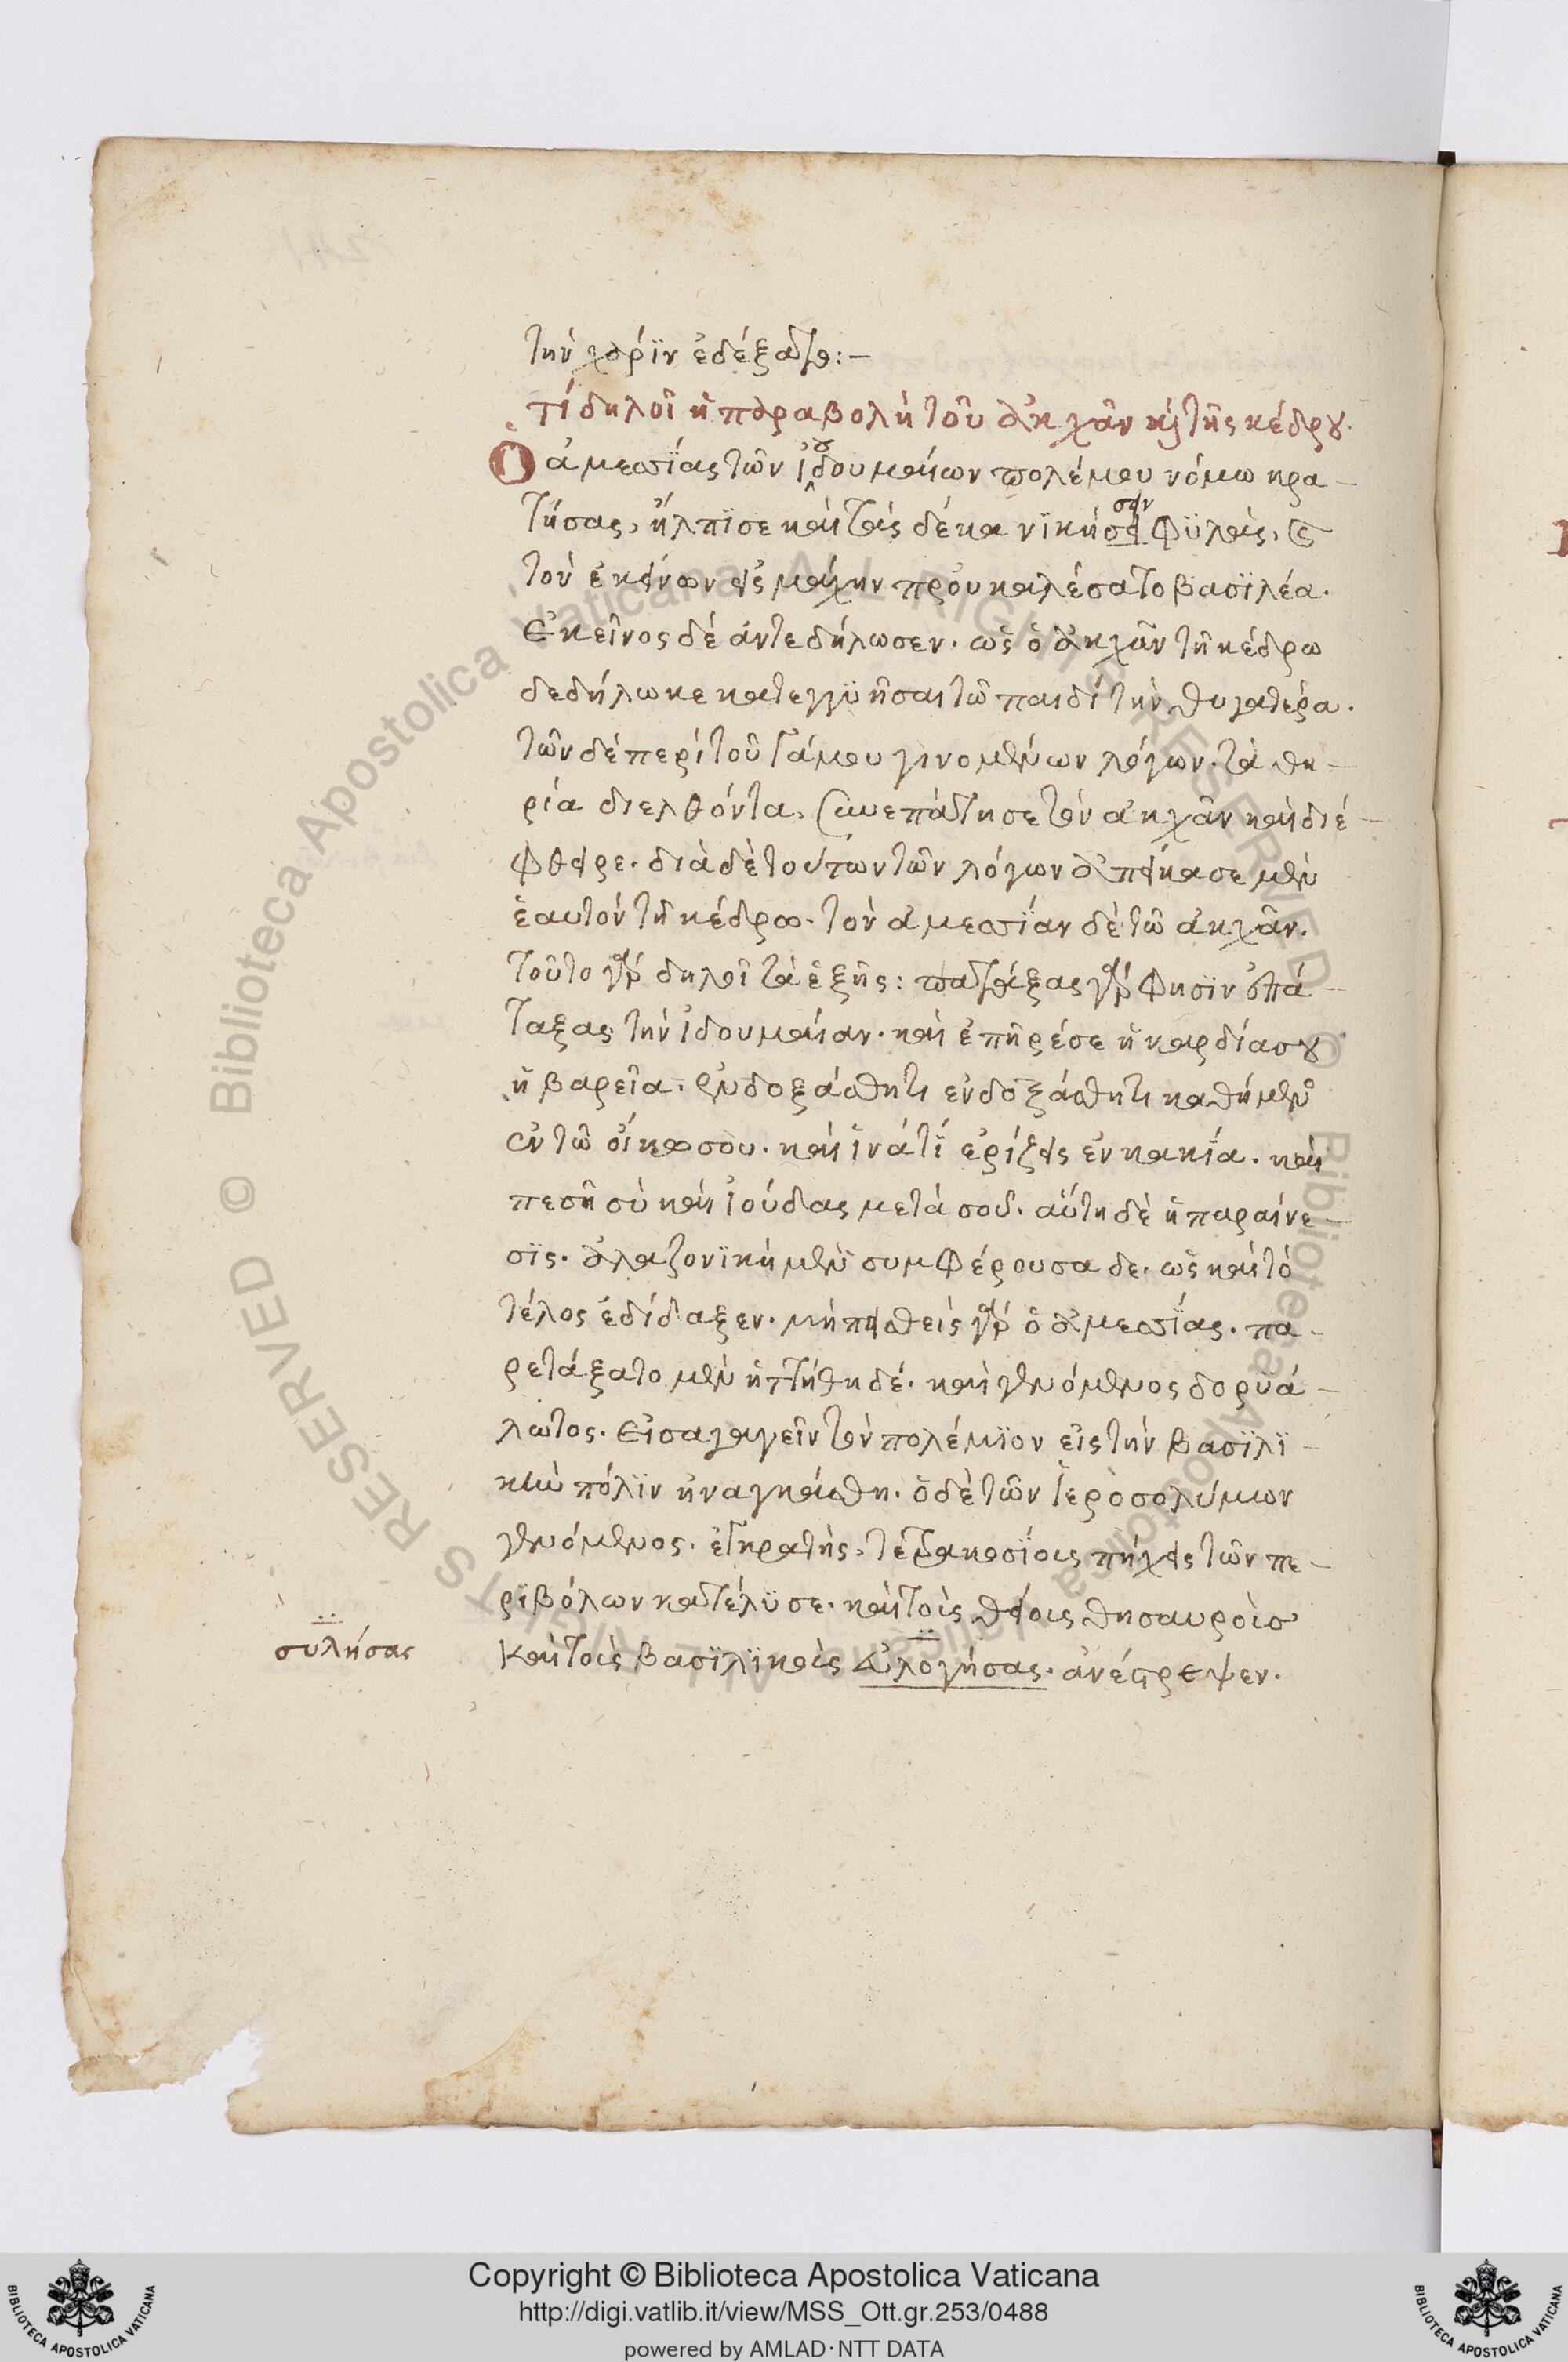 τὴν χάριν ἐδέξατο:–
τί δηλοῖ ἡ παραβολὴ τοῦ ἀκχὰν κ̀ τῆς κέδρου.
Ὁ ἀμεσίας τῶν ἰδουμαίων πολέμου νόμω κρα–
τήσας, ἤλπϊσε καὶ ταῖς δέκα νϊκήσει σειν φϋλαῖς,
τὸν ἐκείνων εἰς μάχην προὐκαλέσατο βασϊλέα.
Ἐκεῖνος δὲ ἀντεδήλωσεν. ὡς ὁ ἀκχὰν τῆ κέδρω
δεδήλωκε κατεγγϋῆσαι τῶ παιδὶ τὴν θυγατέρα.
τῶν δὲ περὶ τοῦ γάμου γινομένων λόγων. τὰ θη–
ρία διελθόντα, συνεπάτησε τὸν ἀκχὰν καὶ διέ–
φθειρε. διὰ δὲ τούτων τῶν λόγων ἀπείκασε μὲν
ἑαυτὸν τῆ κέδρω. τὸν ἀμεσίαν δὲ τῶ ἀκχὰν.
τοῦτο γὰρ δηλοῖ τὰ ἑξῆς: πατάξας γὰρ φησὶν ἐπά–
ταξας τὴν ἰδουμαίαν. καὶ ἐπῆρέσε ἡ καρδία σου
ἡ βαρεῖα. ἐνδοξάσθητι ἐνδοξάσθητι καθήμενος
ἐν τῶ οἴκω σου. καὶ ἱνατί ἐρίζεις ἐν κακία. καὶ
πεσῆ σὺ καὶ ἰούδας μετὰ σοῦ. αὕτη δὲ ἡ παραίνε–
σϊς. ἀλαζονϊκὴ μὲν συμφέρουσα δε. ὡς καὶ τὸ
τέλος ἐδίδαξεν. μὴ πεισθεὶς γὰρ ὁ ἀμεσίας. πα–
ρετάξατο μὲν ἡττήθη δέ. καὶ γενόμενος δορϋά–
λωτος. εἰσαγαγεῖν τὸν πολέμϊον εἰς τὴν βασϊλϊ–
κὴν πόλϊν ἠναγκάσθη. ὁ δὲ τῶν ἱεροσολύμων
γενόμενος. ἐγκρατὴς, τετρακοσίοις πήχεις τῶν πε–
ρϊβόλων κατέλϋσε. καὶ τοῖς θείοις θησαυροῖς
συλήσας
καὶ τοῖς βασϊλϊκοῖς εὐλογήσας. ἀνέστρεψεν.
Copyright © Biblioteca Apostolica Vaticana
http://digi.vatlib.it/view/MSS_Ott.gr.253/0488
powered by AMLAD·NTT DATA